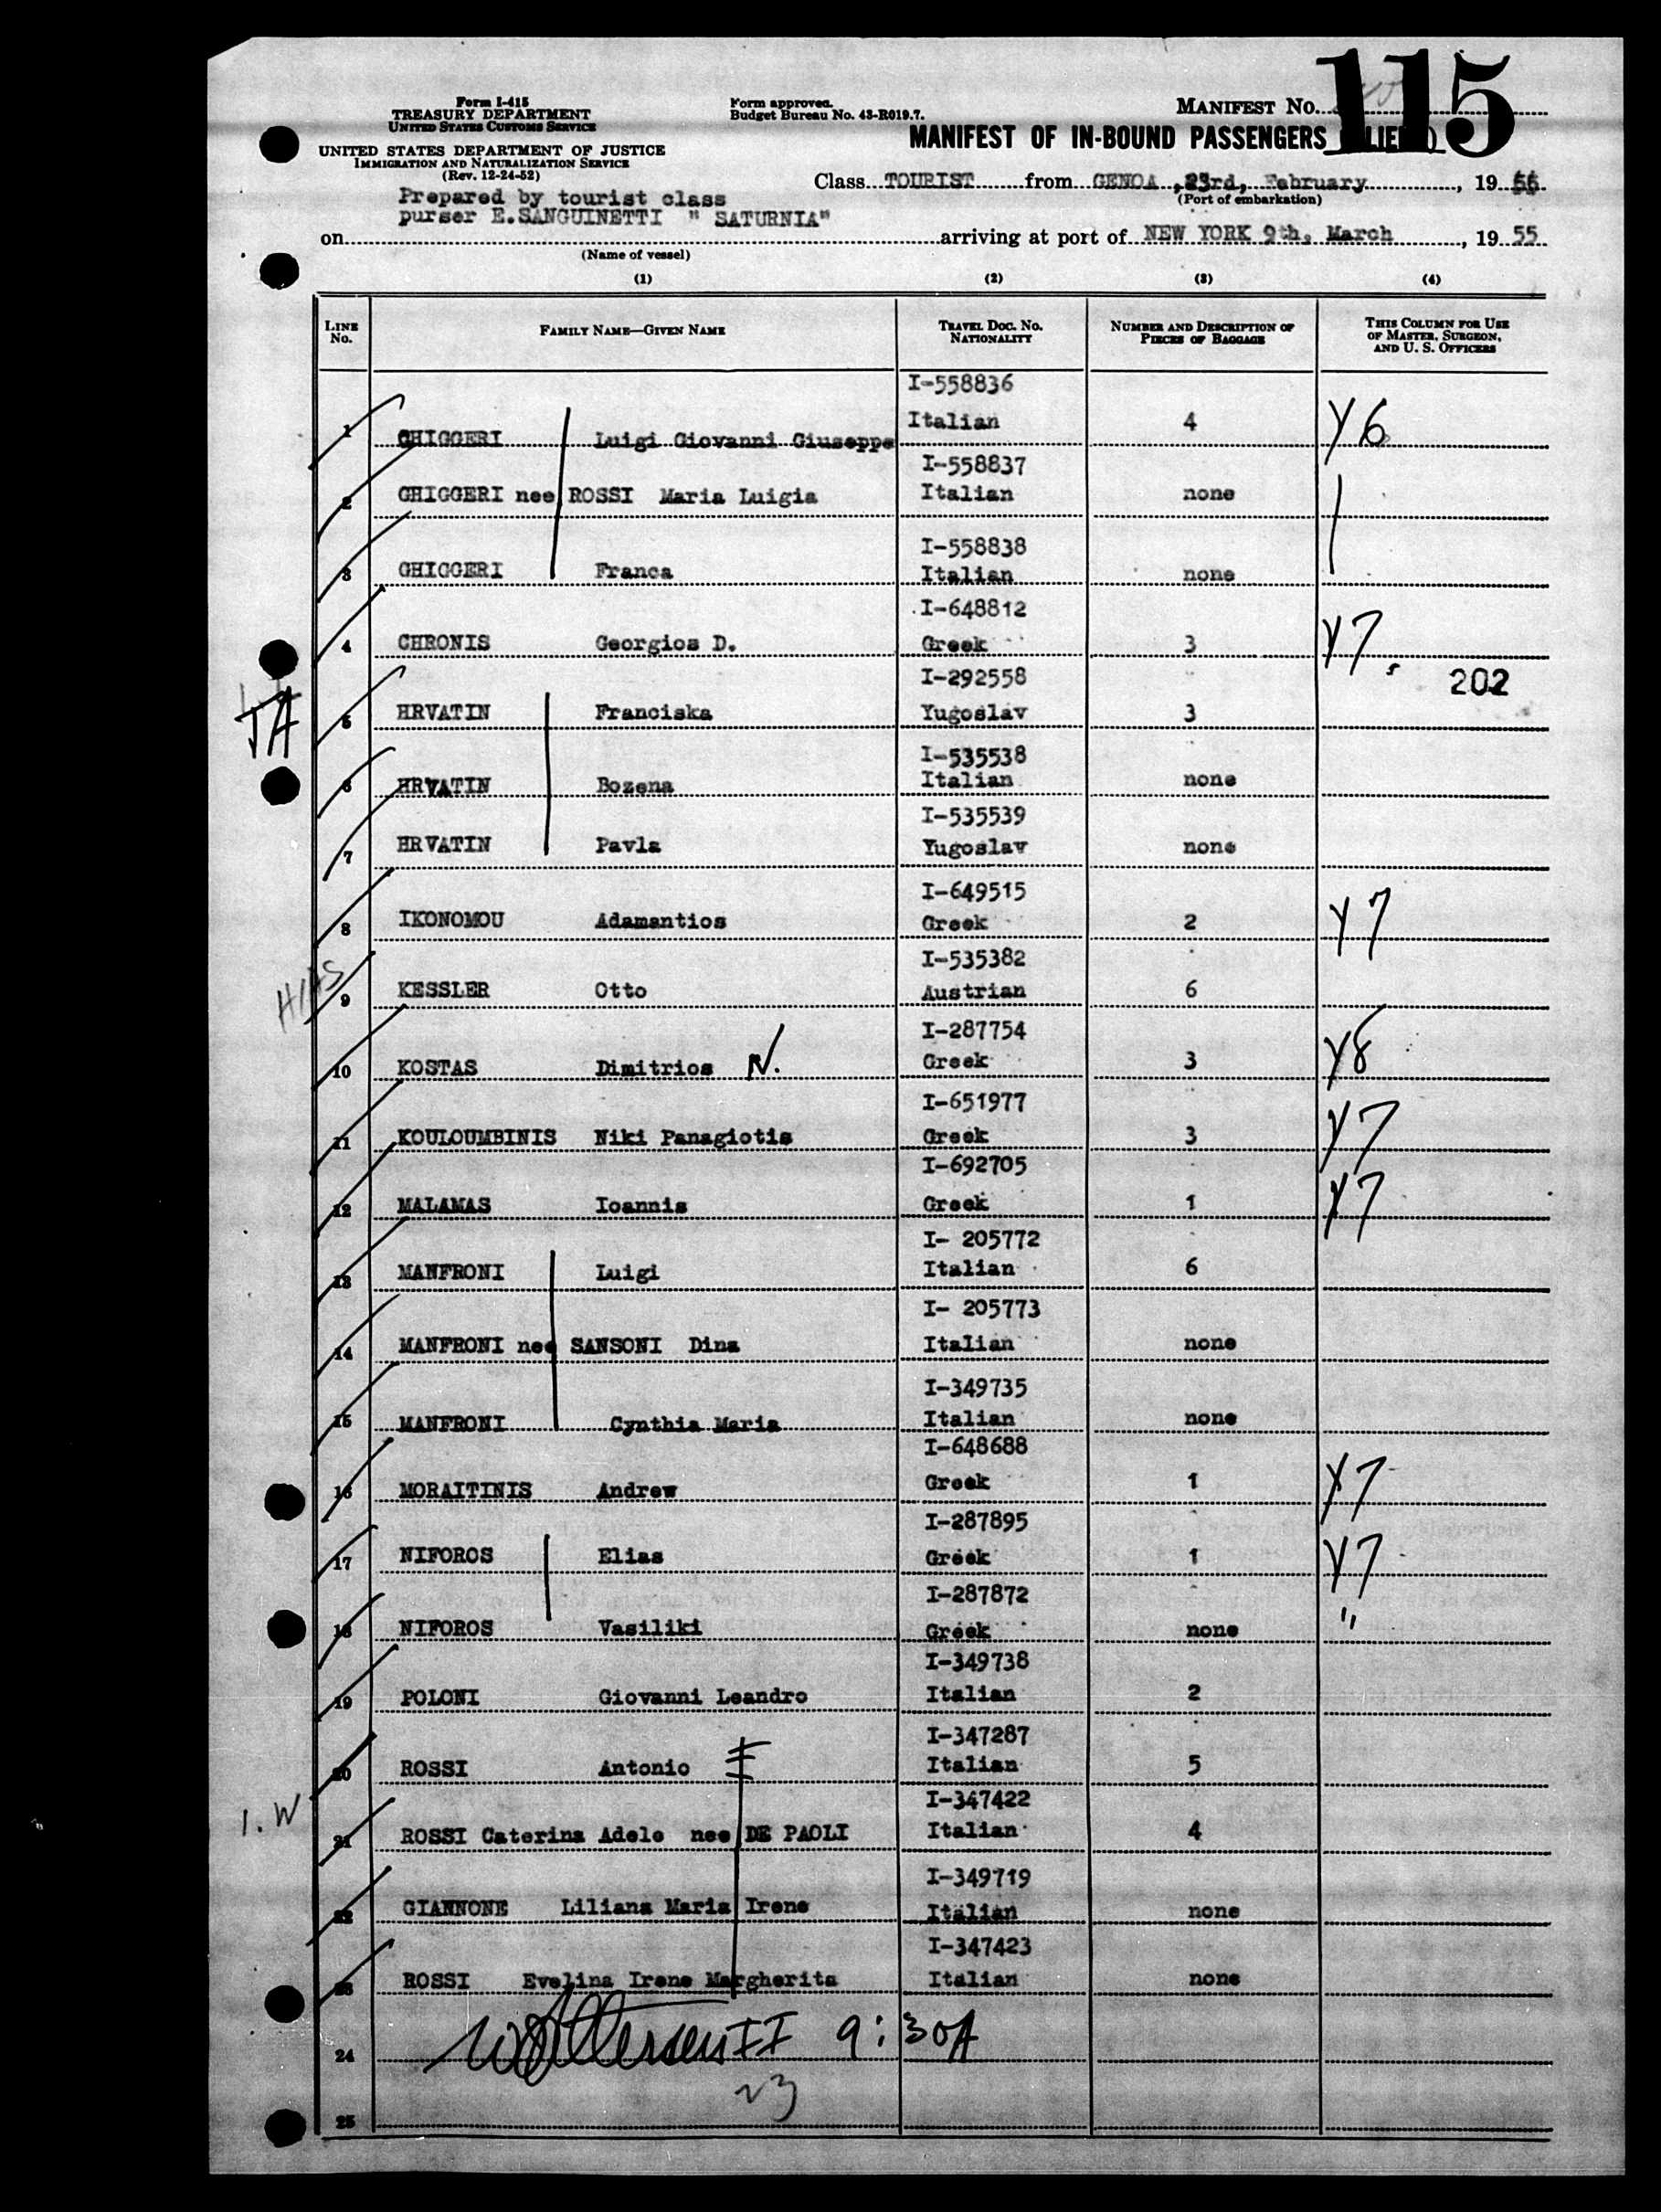 115
Form I-415
TREASURY DEPARTMENT
UNITED STATES CUSTOMS SERVICE
UNITED STATES DEPARTMENT OF JUSTICE
IMMIGRATION AND NATURALIZATION SERVICE
(Rev. 12-24-52)
Form approved.
Budget Bureau No. 43-R019.7.
MANIFEST NO.
MANIFEST OF IN-BOUND PASSENGERS
Class TOURIST from GENOA, 23rd, February, 19
(Port of embarkation)
Prepared by tourist class
purser E.SANGUINETTI " SATURNIA"
on arriving at port of NEW YORK 9th, March, 19 55
(Name of vessel)
(1) (2) (3) (4)
LINE No. FAMILY NAME—GIVEN NAME TRAVEL DOC. NO. NATIONALITY NUMBER AND DESCRIPTION OF PIECES OF BAGGAGE THIS COLUMN FOR USE OF MASTER, SURGEON, AND U. S. OFFICERS
I-558836
1 GHIGGERI Luigi Giovanni Giuseppe Italian 4 Y6
I-558837
2 GHIGGERI nee ROSSI Maria Luigia Italian none
I-558838
3 GHIGGERI Franca Italian none
I-648812
4 CHRONIS Georgios D. Greek 3 Y7
I-292558 202
JA
5 HRVATIN Franciska Yugoslav 3
I-535538
6 HRVATIN Bozena Italian none
I-535539
7 HRVATIN Pavla Yugoslav none
I-649515
8 IKONOMOU Adamantios Greek 2 Y7
I-535382
HIAS
9 KESSLER Otto Austrian 6
I-287754
10 KOSTAS Dimitrios N. Greek 3 Y8
I-651977
11 KOULOUMBINIS Niki Panagiotis Greek 3 Y7
I-692705
12 MALAMAS Ioannis Greek 1 Y7
I- 205772
13 MANFRONI Luigi Italian 6
I- 205773
14 MANFRONI nee SANSONI Dina Italian none
I-349735
15 MANFRONI Cynthia Maria Italian none
I-648688
16 MORAITINIS Andrew Greek 1 Y7
I-287895
17 NIFOROS Elias Greek 1 Y7
I-287872
18 NIFOROS Vasiliki Greek none "
I-349738
19 POLONI Giovanni Leandro Italian 2
I-347287
20 ROSSI Antonio Italian 5
I-347422
I. W
21 ROSSI Caterina Adele nee DE PAOLI Italian 4
I-349719
22 GIANNONE Liliana Maria Irene Italian none
I-347423
23 ROSSI Evelina Irene Margherita Italian none
24 II 9:30A
23
25